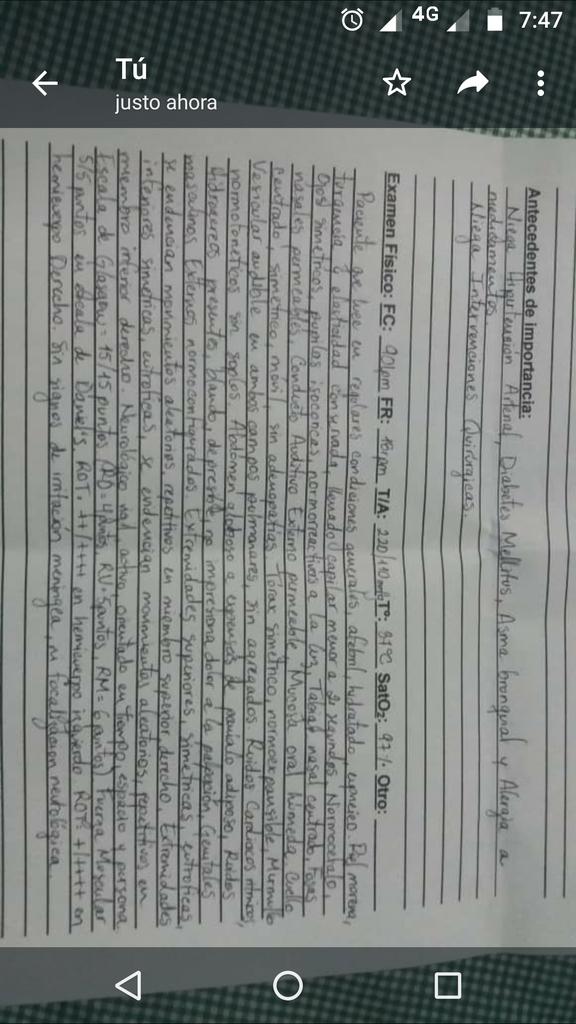 4G 7:47
Tú
justo ahora
Antecedentes de importancia:
Niega Hipertensión Arterial, Diabetes Mellitus, Asma bronquial y Alergia a
medicamentos.
Niega Intervenciones Quirúrgicas.
Examen Físico: FC: 90lpm FR: 18rpm T/A: 220/110 T°: 37°C SatO2: 97% Otro:
Paciente que luce en regulares condiciones generales, afebril, hidratado, eupneico Piel morena,
turgencia y elasticidad conservada, llenado capilar menor a 2 segundos. Normocefalo,
Ojos simetricos, pupilas isocoricas, normoreactivas a la luz, Tabique nasal centrado, fosas
nasales permeables, Conducto Auditivo Externo permeable Mucosa oral húmeda, Cuello
centrado, simetrico, movil, sin adenopatias Torax simetrico, normoexpansible, Murmullo
Vesicular audible en ambos campos pulmonares, sin agregados Ruidos Cardiacos ritmicos,
normofoneticos sin soplos, Abdomen globoso a expensas de paniculo adiposo, Ruidos
hidroaereos presentes, blando, depresible, no impresiona dolor a la palpacion, Genitales
masculinos Externos normoconfigurados Extremidades superiores, simetricas, eutroficas,
se evidencian movimientos aleatorios, repetitivos en miembro superior derecho, Extremidades
inferiores simetricas, eutroficas, se evidencian movimientos aleatorios, repetitivos en
miembro inferior derecho. Neurológico activo, orientado en tiempo, espacio y persona
Escala de Glasgow = 15/15 puntos RV=5puntos, RM= 6 puntos) Fuerza Muscular
5/5 puntos en escala de Daniels, ROT: ++/++++ en hemicuerpo izquierdo ROT: +/++++ en
hemicuerpo Derecho. Sin signos de irritación meningea, ni focalizacion neurológica.